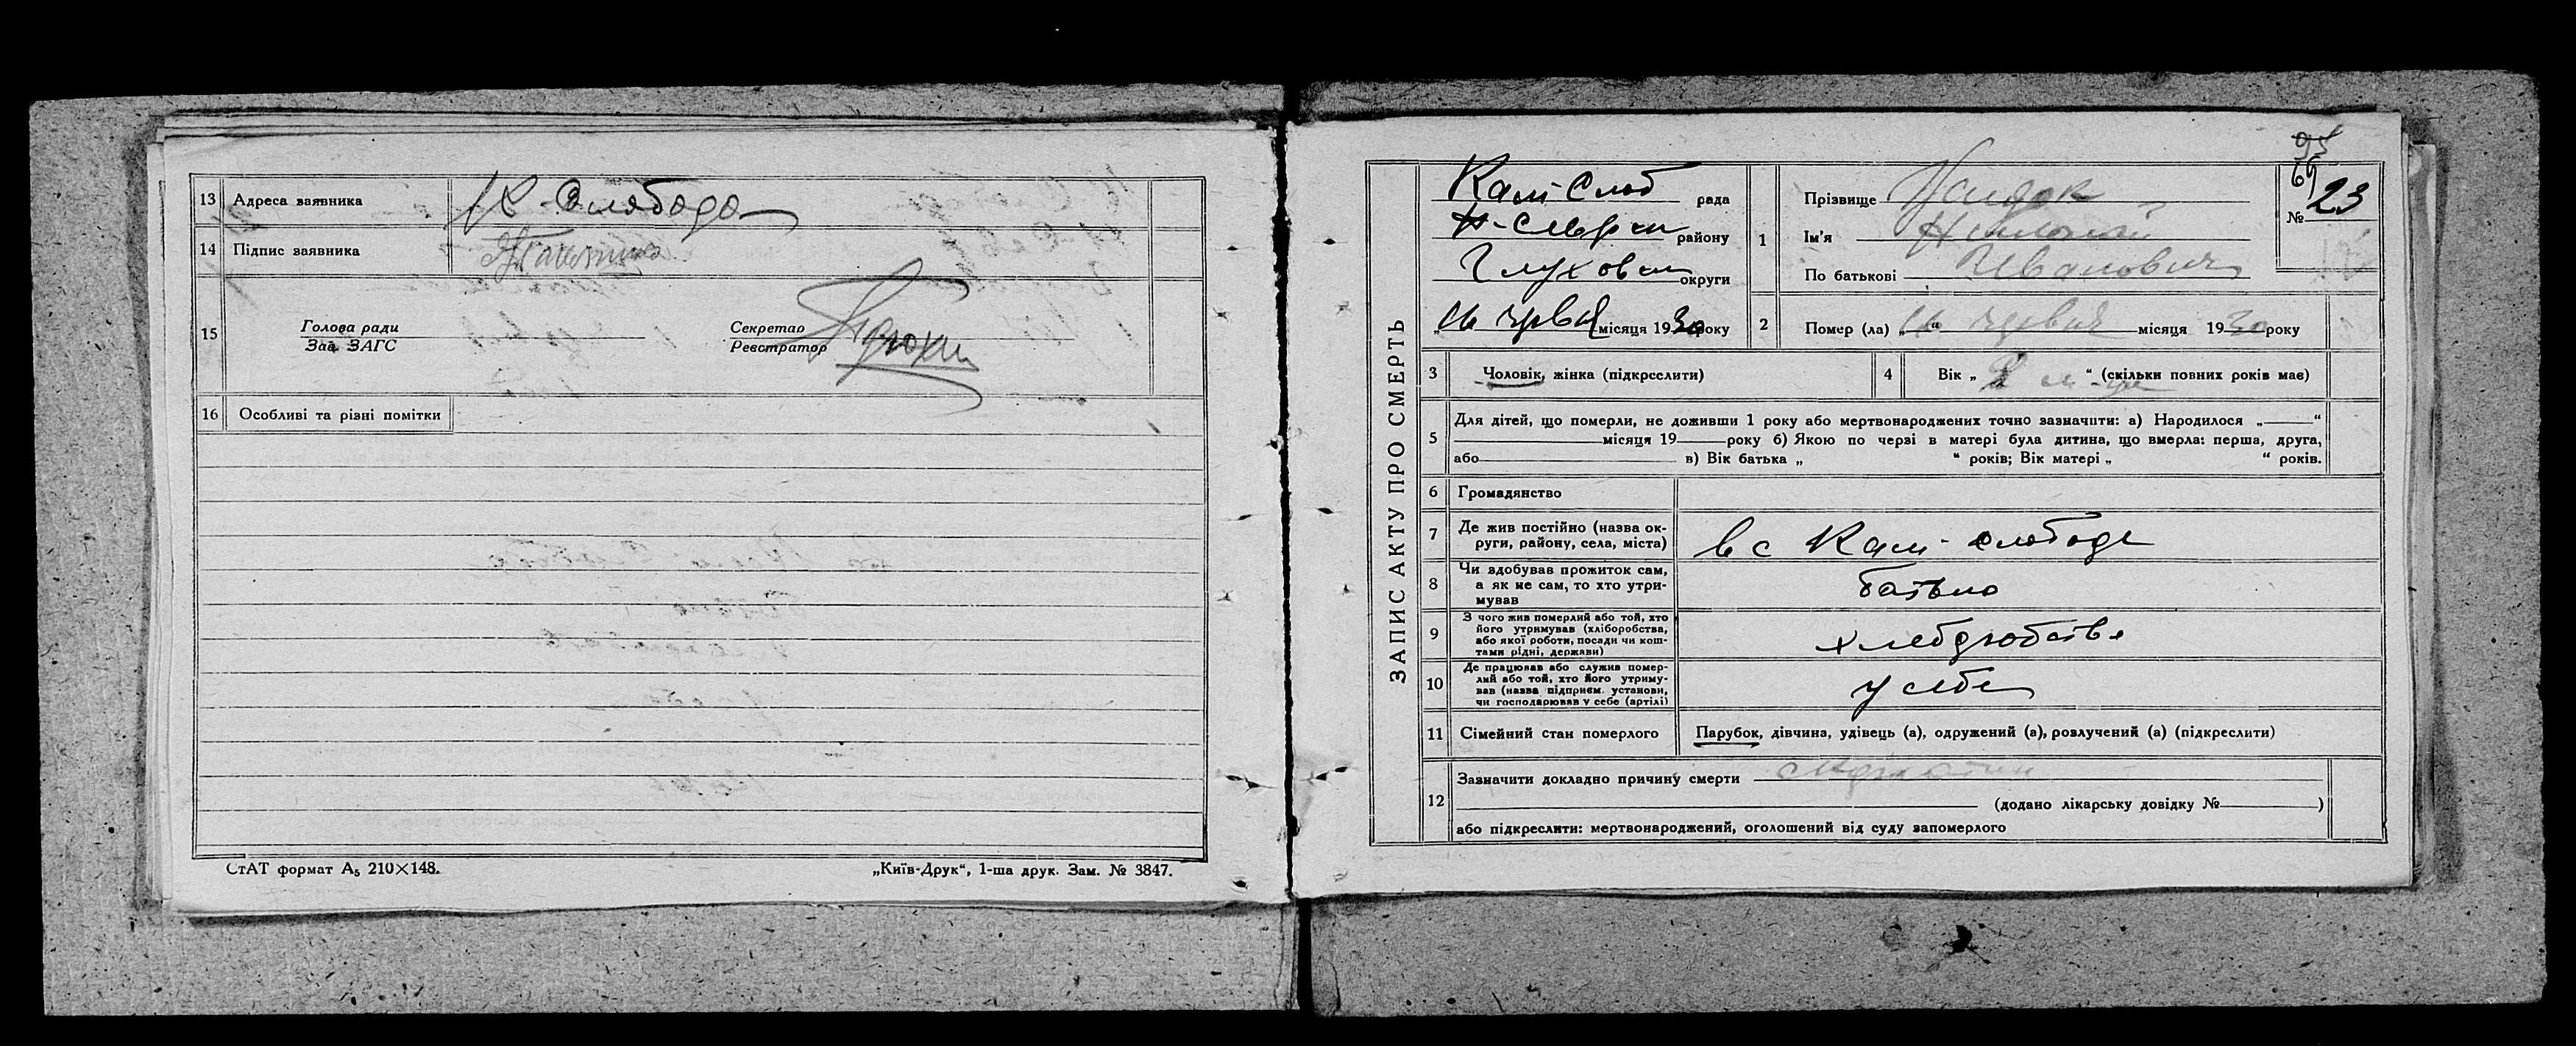 13 Адреса заявника К-Слобода
14 Підпис заявника
15 Голова ради
Зав. ЗАГС
Секретар
Реєстратор
16 Особливі та різні помітки
СтАТ формат А5 210×148.
„Київ-Друк“, 1-ша друк. Зам. № 3847.
ЗАПИС АКТУ ПРО СМЕРТЬ
Кам-Слоб рада
району
Глухов округи
„16 червня місяця 1930 року
95
69
№ 23
1 Прізвище
Ім'я
По батькові Иванович
2 Помер (ла) „16“ червня місяця 1930 року
3 Чоловік, жінка (підкреслити)
4 Вік „ “ (скільки повних років має)
5 Для дітей, що померли, не доживши 1 року або мертвонароджених точно зазначити: а) Народилося „ “
місяця 19 року б) Якою по черзі в матері була дитина, що вмерла: перша, друга,
або в) Вік батька „ “ років; Вік матері „ “ років.
6 Громадянство
7 Де жив постійно (назва ок-
руги, району, села, міста) в с Кам-Слободе
8 Чи здобував прожиток сам,
а як не сам, то хто утри-
мував батько
9 З чого жив померлий або той, хто
його утримував (хліборобства,
або якої роботи, посади чи кош-
тами рідні, держави)
10 Де працював або служив помер-
лий або той, хто його утриму-
вав (назва підприєм. установи,
чи господарював у себе (артілі) у себе
11 Сімейний стан померлого Парубок, дівчина, удівець (а), одружений (а), розлучений (а) (підкреслити)
12 Зазначити докладно причину смерти
(додано лікарську довідку № )
або підкреслити: мертвонароджений, оголошений від суду запомерлого